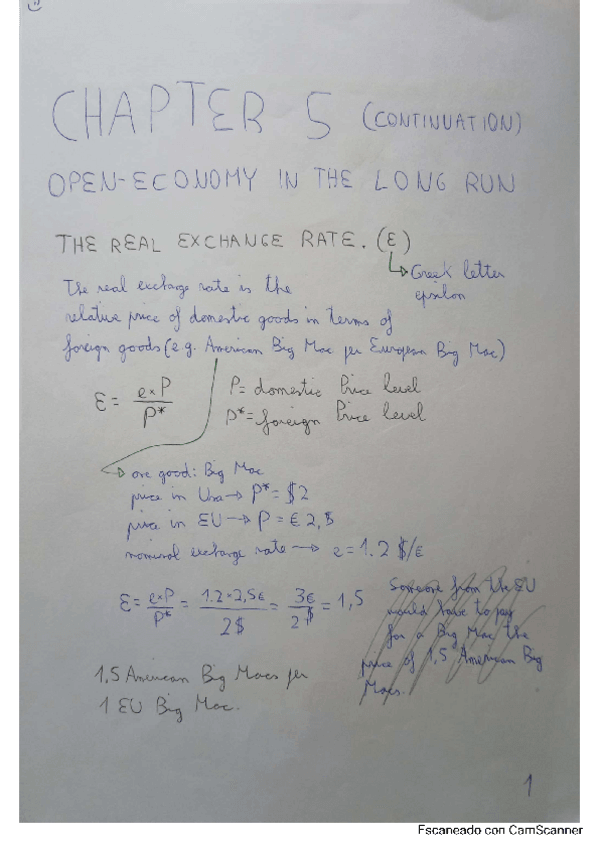 CHAPTER 5 (CONTINUATION)
OPEN-ECONOMY IN THE LONG RUN
THE REAL EXCHANGE RATE. (ε)
Greek letter
epsilon
The real exchange rate is the
relative price of domestic goods in terms of
foreign goods (e g. American Big Mac per European Big Mac)
ε = e×P / P*
P = domestic Price level
P* = foreign Price level
one good: Big Mac
price in Usa → P* = $2
price in EU → P = € 2,5
nominal exchange rate → e = 1.2 $/€
ε = e×P / P* = 1.2 × 2,5€ / 2$ = 3€ / 2$ = 1,5
Someone from the EU
would have to pay
for a Big Mac the
price of 1,5 American Big
Macs.
1,5 American Big Macs per
1 EU Big Mac.
1
Escaneado con CamScanner